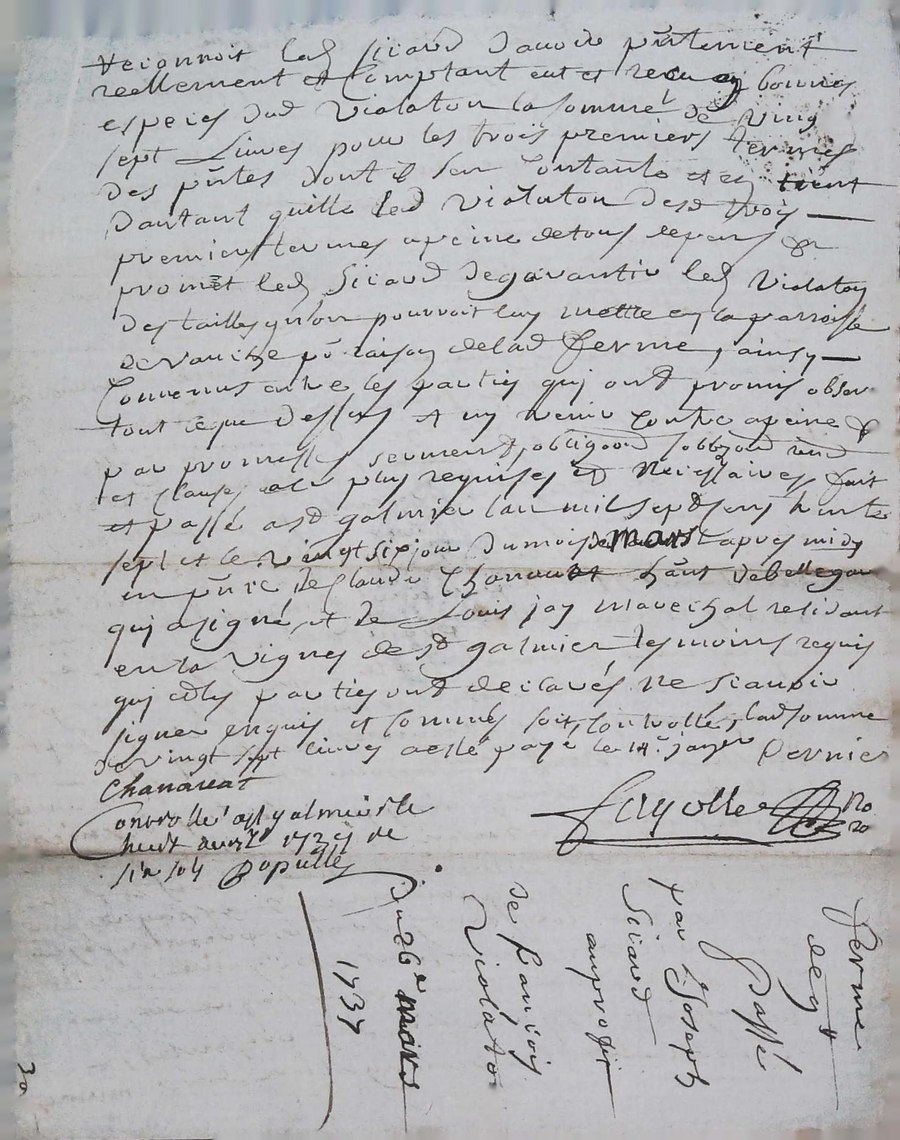 reconnoit led Sicaud davoir pntement
reellement et Comptant eut et receu en bonnes
especes dud Violaton la somme de vingt
sept Livres pour les trois premiers termes
des pntes dont il son Contante et en tient
dautant quitte led Violaton desd trois
premiers termes a peine de tous depans &
promet led Sicaud de garantir led Violaton
des tailles qu'on pourroit luy mettre en la parroisse
de pr raison de lad ferme, ainsy
Convenus entre les parties qui ont promis obser
tout ce que dessus et ny venir Contre a peine &
par promesses serment, obligaon
et Clauses plus requises et Necessaires, fait
et passé a st galmier lan mil sept cens trente
sept et le vingt six jour du mois de mars apres midy
en pnce de Claude Chanavat hant de bellegar
qui a signé, et de Louis jay marechal residant
en la Vignes de st galmier temoins requis
qui et les parties ont declarés ne scavoir
signer enquis et sommés soit Controllé, lad somme
de vingt sept livres a esté payé le janer Dernier
Chanavat
Controllé a st galmier le
huit avril 1737 re
six sols Populle
fayolle
No
ro
ferme
de 9
Passé
par Joseph
Sicaud
au profit
de françois
Violato
Du 26e mars
1737
30